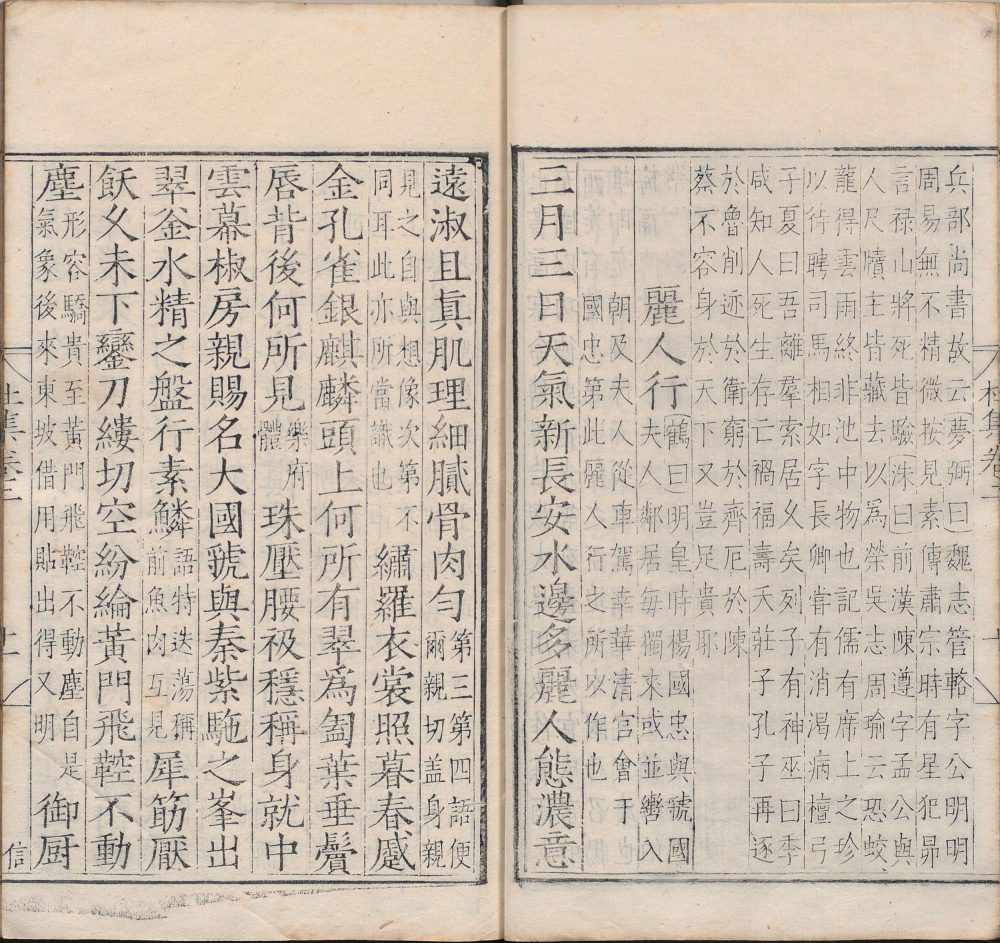 兵部尚書故云(夢弼曰)魏志管輅字公明明
周易無不精微按見素傳肅宗時有星犯昴
言禄山將死皆驗(洙曰)前漢陳遵字孟公與
人尺牘主皆藏去以爲榮吳志周瑜云恐蛟
龍得雲雨終非池中物也記儒有席上之珍
以待聘司馬相如字長卿甞有消渴病檀弓
子夏曰吾離羣索居夊矣列子有神巫曰季
咸知人死生存亡禍福壽夭莊子孔子再逐
於魯削迹於衛窮於齊厄於陳
蔡不容身於天下又豈足貴耶
麗人行
(鶴曰)明皇時楊國忠與虢國
夫人鄰居每獨來或並轡入
朝及夫人從車駕幸華清宫會于
國忠第此麗人行之所以作也
三月三日天氣新長安水邊多麗人態濃意
遠淑且真肌理細膩骨肉匀
第三第四語便
爾親切盖身親
見之自與想像次第不
同耳此亦所當識也
繡羅衣裳照暮春蹙
金孔雀銀麒麟頭上何所有翠爲㔩葉垂鬢
唇背後何所見
樂府
體
珠壓腰衱穩稱身就中
雲幕椒房親賜名大國虢與秦紫駞之峯出
翠釜水精之盤行素鱗
語特迭蕩稱
前魚肉互見
犀筯厭
飫夊未下鑾刀縷切空紛綸黃門飛鞚不動
塵
形容驕貴至黃門飛鞚不動塵自是
氣象後來東坡借用貼出得又明
御厨
信
杜集卷二